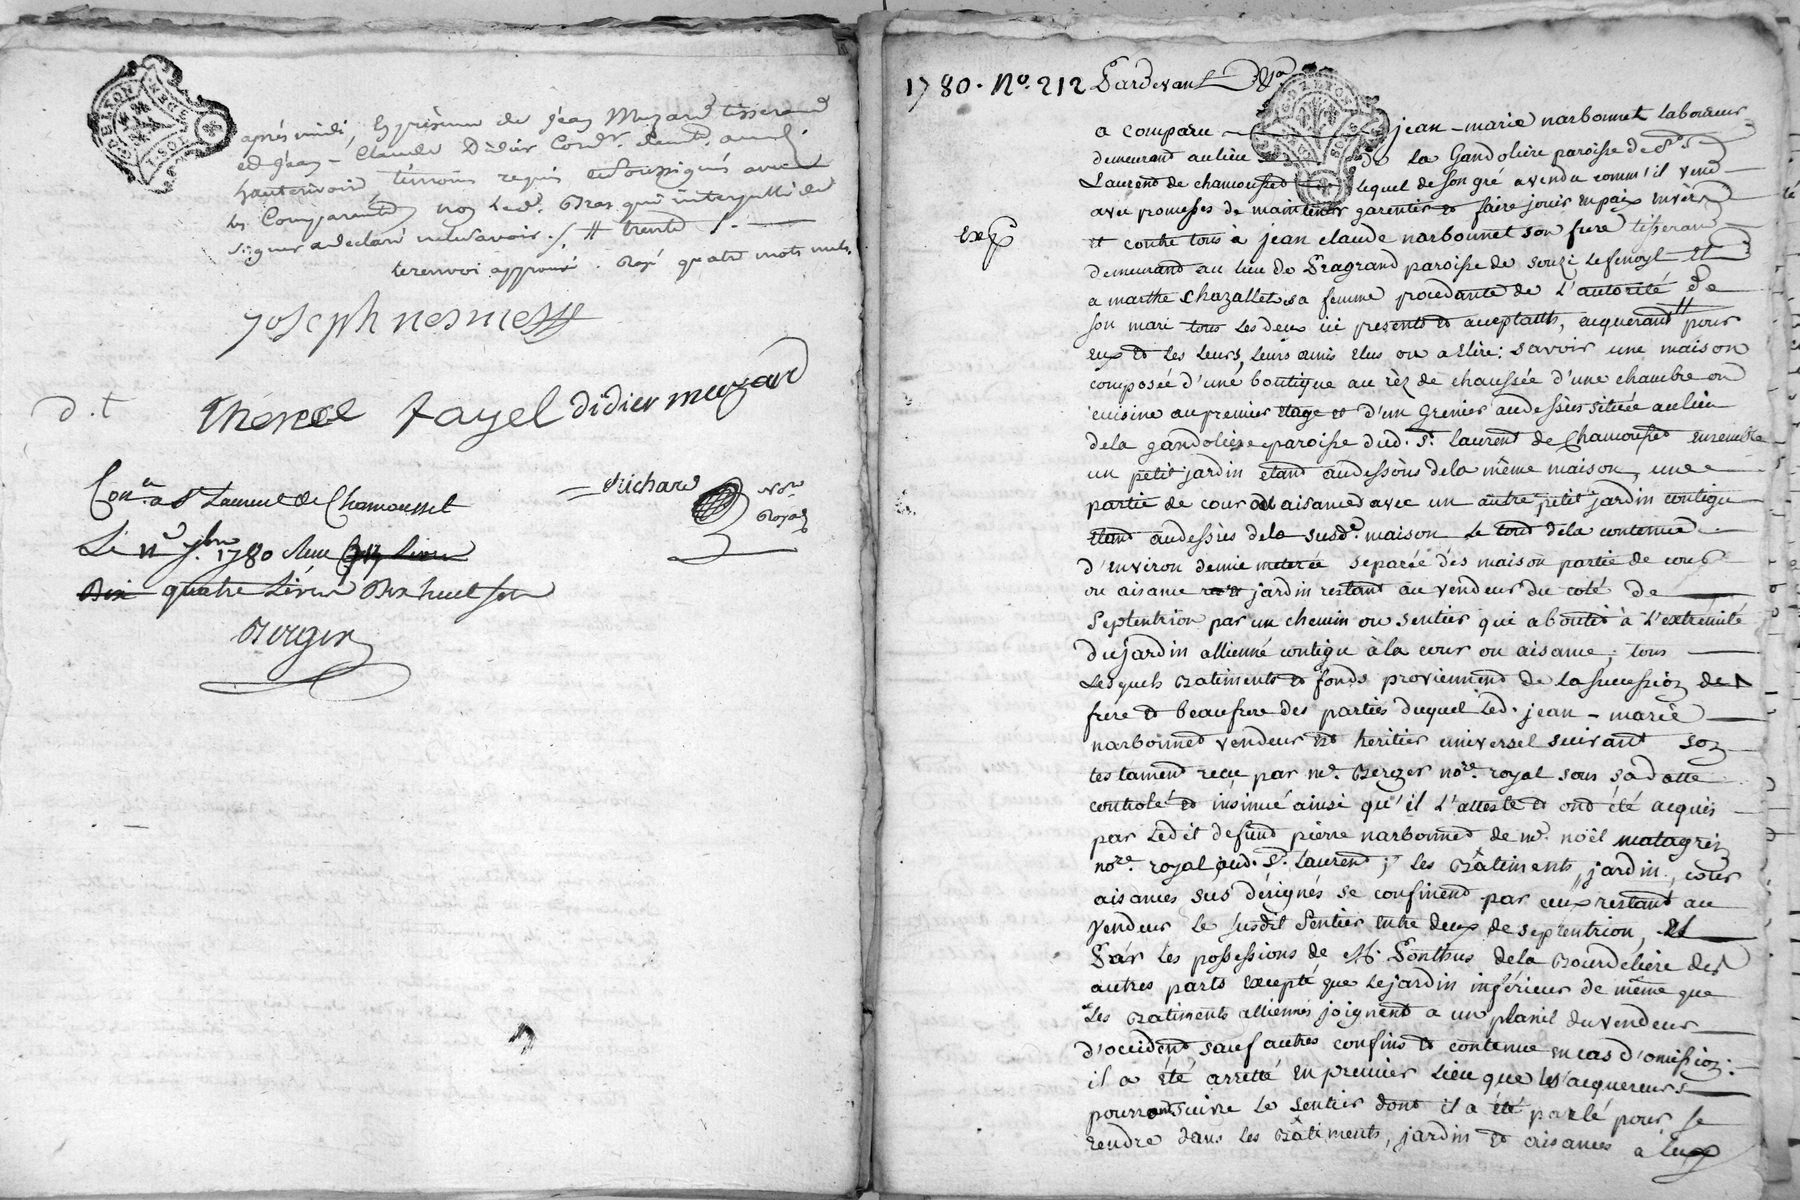 après midi, En présence de jean Muzard tisserand
et jean-Claude Didier Cord.r
hautrivoir, témoins requis et soussignés avec
les Comparants, non led. Bras qui interpellé de
signer a declaré ne le savoir ./. # trente /.
le renvoi approuvé. Rayé quatre mots nuls.
joseph nesme
d.t
Thoncel fayel didier muzard
Richard
No.re
Royal
Con.lé a St Laurent de Chamousset
Le 11.e 7bre 1780
Dix quatre Livres Dix huit sols
Berger
1780. No. 212 Pardevant
a comparu jean-marie narbonnet laboureur
demeurant au lieu de La Gandoliere paroisse de St
Laurent de chamousset lequel de son gré a vendu comm'il vend
avec promesses de maintenir garentir et faire jouir en paix envers
exp
et contre tous à jean claude narbonnet son frere tisserand
demeurant au lieu de Pragrand paroisse de souzi Lefenoyl et
a marthe chazallet sa femme procedante de L'autorité de
son mari tous les deux ici presents et acceptants, acquerant pour
eux et les leurs, leurs amis elus ou a elire: savoir une maison
composée d'une boutique au rèz de chaussée d'une chambre ou
cuisine au premier etage et d'un Grenier au dessûs située au lieu
de la gandoliere paroisse dud. St. laurent de Chamousset ensemble
un petit jardin etant au dessous de la même maison, une
partie de cour et aisance avec un autre petit jardin contigu
etant au dessus de la susd.e maison Le tout de la contenue
d'environ demie meterée separée des maison partie de cour
ou aisance et jardin restant au vendeur du coté de
Septentrion par un chemin ou sentier qui aboutit à L'extremité
du jardin allienné contigu à la cour ou aisance; tous
Lesquels Batiments et fonds proviennent de la succession de
frere et beaufrere des parties duquel Led. jean-marie
narbonnet vendeur est heritier universel suivant son
testament recu par m.e Berger no.re royal sous sa datte
controlé et insinué ainsi qu'il L'atteste et ont été acquis
par Ledit defunt pierre narbonnet de m.e noël matagrin
no.re royal aud. St. Laurent; les Bâtiments, jardin, cour
aisances sus désignés se confinent par ceux restant au
vendeur le susdit Sentier entre deux de septentrion, et
Par les possessions de M. Ponthus de la Bourdeliere des
autres parts excepté que Le jardin inférieur de même que
Les Batiments alliennés joignent a un planil du vendeur
d'occident sauf autres confins et contenue en cas d'omission:
il a été arretté en premier Lieu que les acquereurs
pourront suivre Le Sentier dont il a été parlé pour se
rendre dans les Bâtiments, jardin et aisances a eux